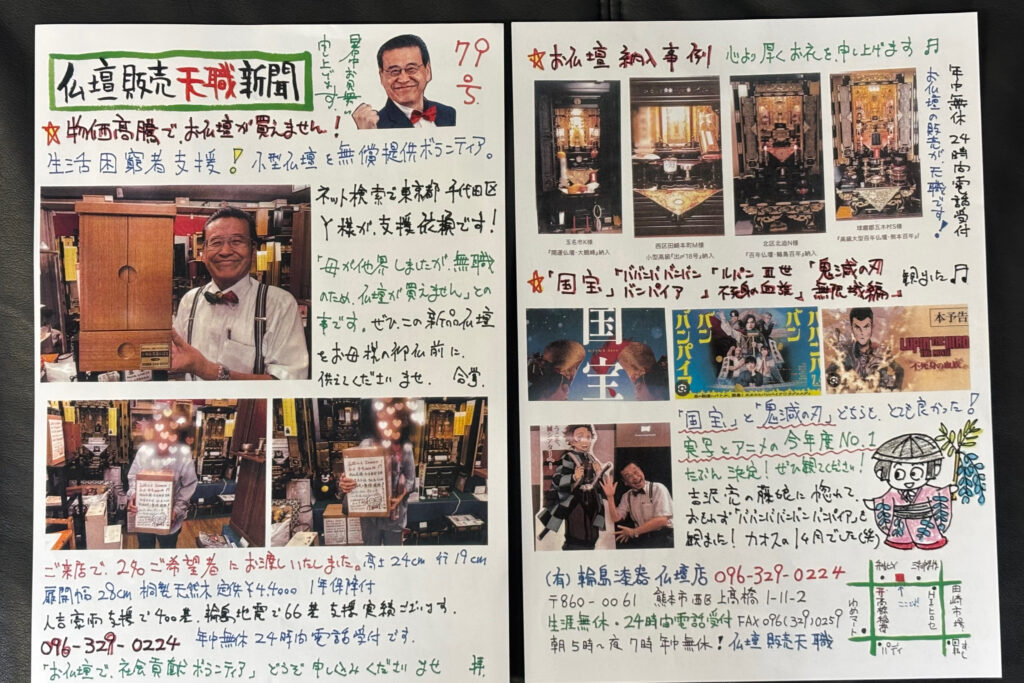 仏壇販売天職新聞
暑中お見舞
申し上げます
79
号
☆物価高騰で、お仏壇が買えません！
生活困窮者支援！小型仏壇を無償提供ボランティア。
ネット検索で東京都千代田区
Y様が、支援依頼です！
「母が他界しましたが、無職
のため、仏壇が買えません」との
事です。ぜひ、この新品仏壇
をお母様の御仏前に、
供えてくださいませ。合掌。
ご来店で、2名ご希望者にお渡しいたしました。高さ24cm 行19cm
扉開巾28cm 桐製天然木 定価￥44,000 1年保障付
人吉豪雨支援で400基、輪島地震で66基支援実績ございます。
096-329-0224 年中無休24時間電話受付です。
「お仏壇で、社会貢献ボランティア」どうぞ申し込みくださいませ 拝.
☆お仏壇納入事例 心より厚くお礼を申し上げます♬
年中無休24時間電話受付
お仏壇の販売が、天職です！
玉名市K様
『開運仏壇・大観峰』納入
西区田崎本町M様
小型高級『出が18号』納入
北区北迫N様
『百年仏壇・輪島百年』納入
球磨郡五木村S様
『高級大型百年仏壇・熊本百年』納入
☆「国宝」「ババンババンバン バンパイア」「ルパン三世 不死身の血族」「鬼滅の刃 無限城編」観ました♬
国宝
ババンババンバンバンパイア
本予告
LUPIN THE IIIRD
THE MOVIE
不死身の血族
「国宝」と「鬼滅の刃」どちらも、とても良かった！
実写とアニメの今年度No.1
たぶん決定！ぜひ観てください！
吉沢亮の藤娘に惚れて、
おもわず「ババンババンバンバンパイア」も
観ました！カオスの1ヶ月でした(笑)
(有)輪島漆器仏壇店 096-329-0224
〒860-0061 熊本市西区上高橋1-11-2
生涯無休・24時間電話受付 FAX096(329)0259
朝5時～夜7時 年中無休！仏壇販売天職
ここだよ
井芹川
高橋稲荷
ゆめマート
田崎市場